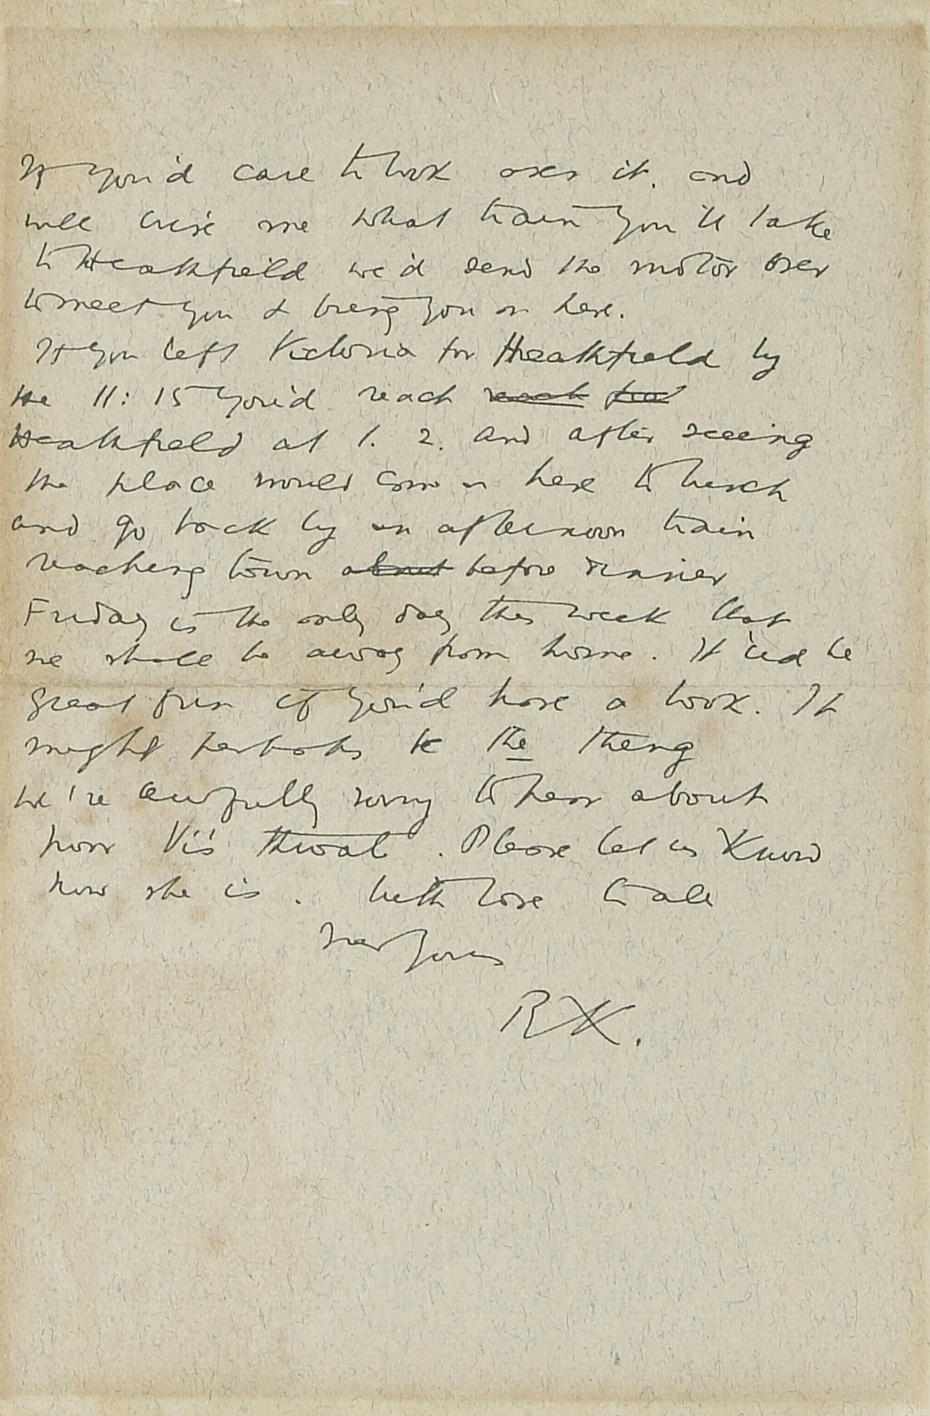 If you'd care to look over it. and
will wire me what train you'll take
to Heathfield we'd send the motor over
to meet you & bring you on here.
If you left Victoria for Heathfield by
the 11:15 you'd reach
Heathfield at 1. 2. and after seeing
the place would come on here to lunch
and go back by an afternoon train
reaching town about before dinner
Friday is the only day this week that
we shall be away from home. It 'ud be
great fun if you'd have a look. It
might perhaps be the thing
We're awfully sorry to hear about
poor Vi's throat. Please let us know
how she is. With love to all
Ever yours
RK.